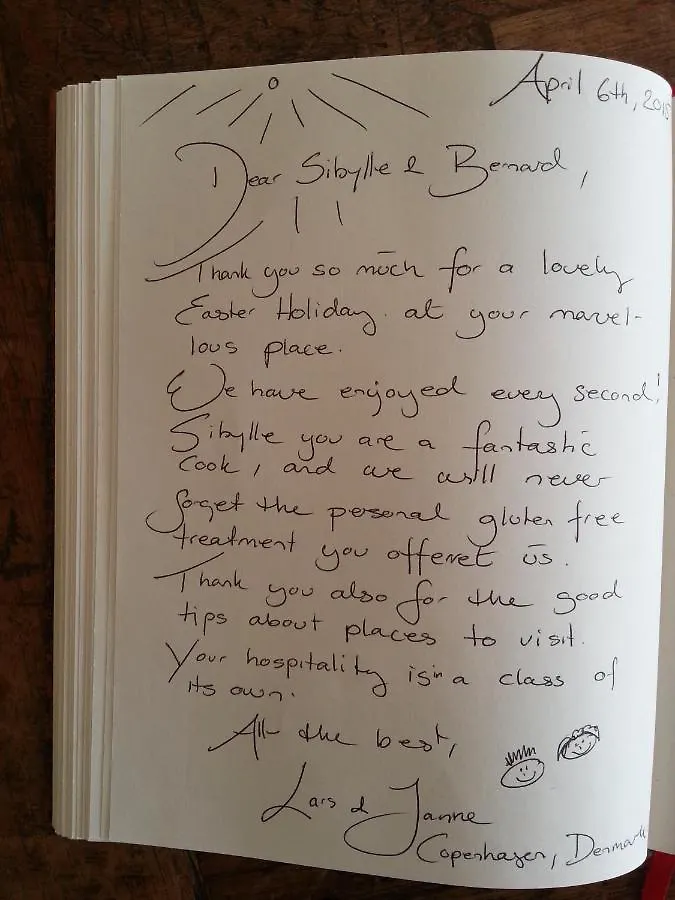 April 6th, 201
Dear Sibylle & Bernard,
Thank you so much for a lovely
Easter Holiday. at your marvel-
lous place.
We have enjoyed every second!
Sibylle you are a fantastic
cook, and we will never
forget the personal gluten free
treatment you offeret us.
Thank you also for the good
tips about places to visit.
Your hospitality is in a class of
its own.
All the best,
Lars & Janne
Copenhagen, Denmark